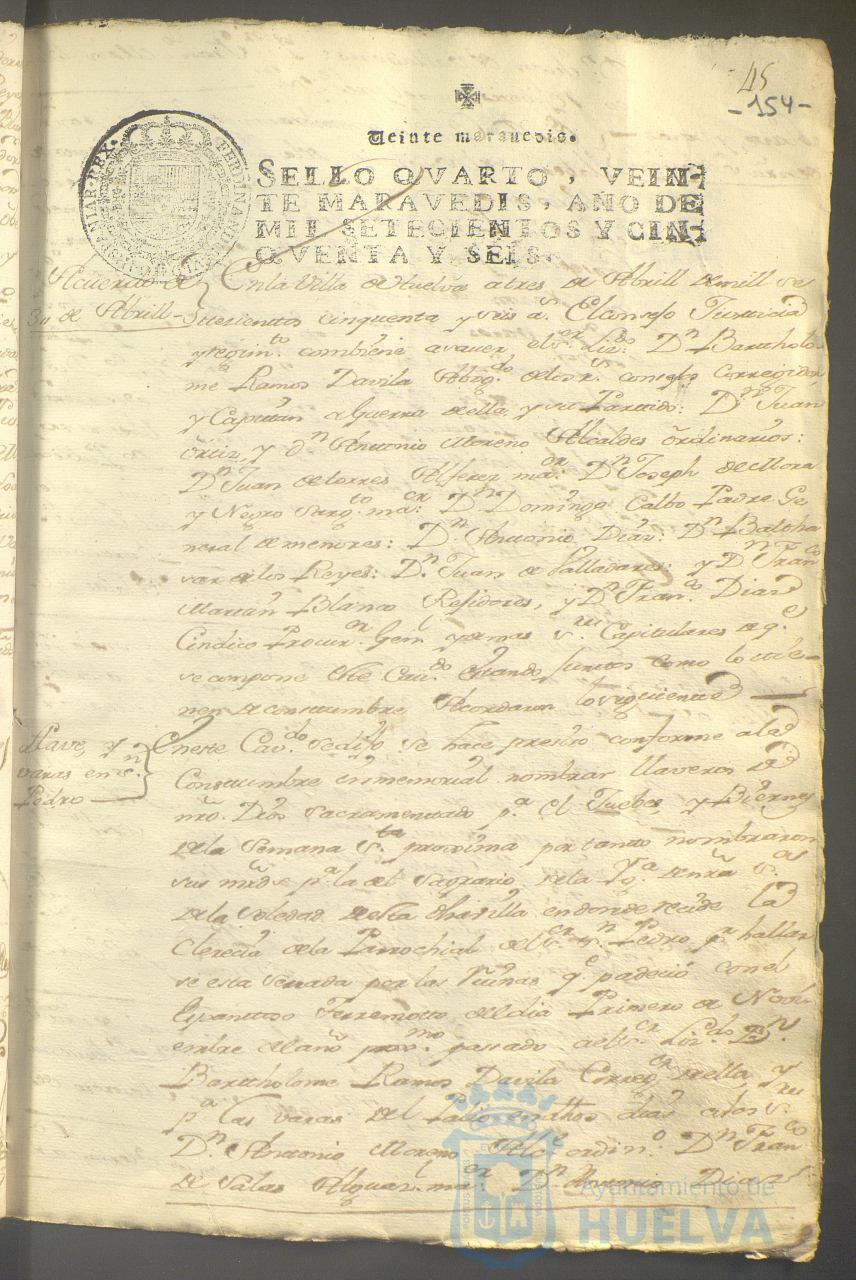 45
-154-
Veinte marauedis.
SELLO QVARTO, VEIN-
TE MARAVEDIS, AÑO DE
MIL SETECIENTOS Y CIN-
QVENTA Y SEIS.
Acuerdo de
3 de Abrill
En la Villa de Huelva a tres de Abrill de mill se
tecienttos cinquenta y seis as. El consejo Justicia
y regimto. combiene a saver el sor. Lizdo. Dn Bartholo-
me Ramos Davila Abogdo. de los rs. consejos Corregidor
y Capitan a Guerra de ella y su Partido: Dn Juan
Ortiz, y Dn Antonio Moreno Alcaldes ordinarios:
Dn Juan de torres Alferez maor. Dn Joseph de Mora
y Negro Sargto. maor: Dn Domingo Calbo Padre Ge
neral de menores: Dn Antonio Diaz: Dn Baltha
sar de los Reyes: Dn Juan de Valladares: y Dn Franco
Martin Blanco Rejidores, y Dn Franco. Diaz
Cindico Procuror. Genl. y demas sres. Capitulares de qe
se compone este Cavdo. estando Juntos como lo tie-
nen de consttumbre Acordaron lo siguiente
Llave, y
varas en Sn.
Pedro
En este Cavdo. se dijo se hace presiso conforme a la
Consttumbre inmemorial nombrar llaveros de
nro. Dios Sacramentado pa. el Juebes, y Biernes
de la Semana Sta. proxima por tanto nombraron
sus mrds pa. la del Sagrario de la Yga. de nra Sra
de la Soledad de esta dha villa en donde recide la
Clerecia de la Parrochial del sor. Sn Pedro pr. hallar
se esta serrada por las Ruinas qe. padeció con el
Espanttoso Terremotto del dia Primero de Novi-
embre del año proxmo. passado al sor. Lizdo. Dn
Bartholome Ramos Davila Corregor. de ella y
pa. las varas del Palio en dhos dias a los Sres.
Dn. Antonio Moreno Alce ordino. Dn Franco
de Salas Alguazl. maor. Dn Antonio Diaz
Ayuntamiento de
HUELVA